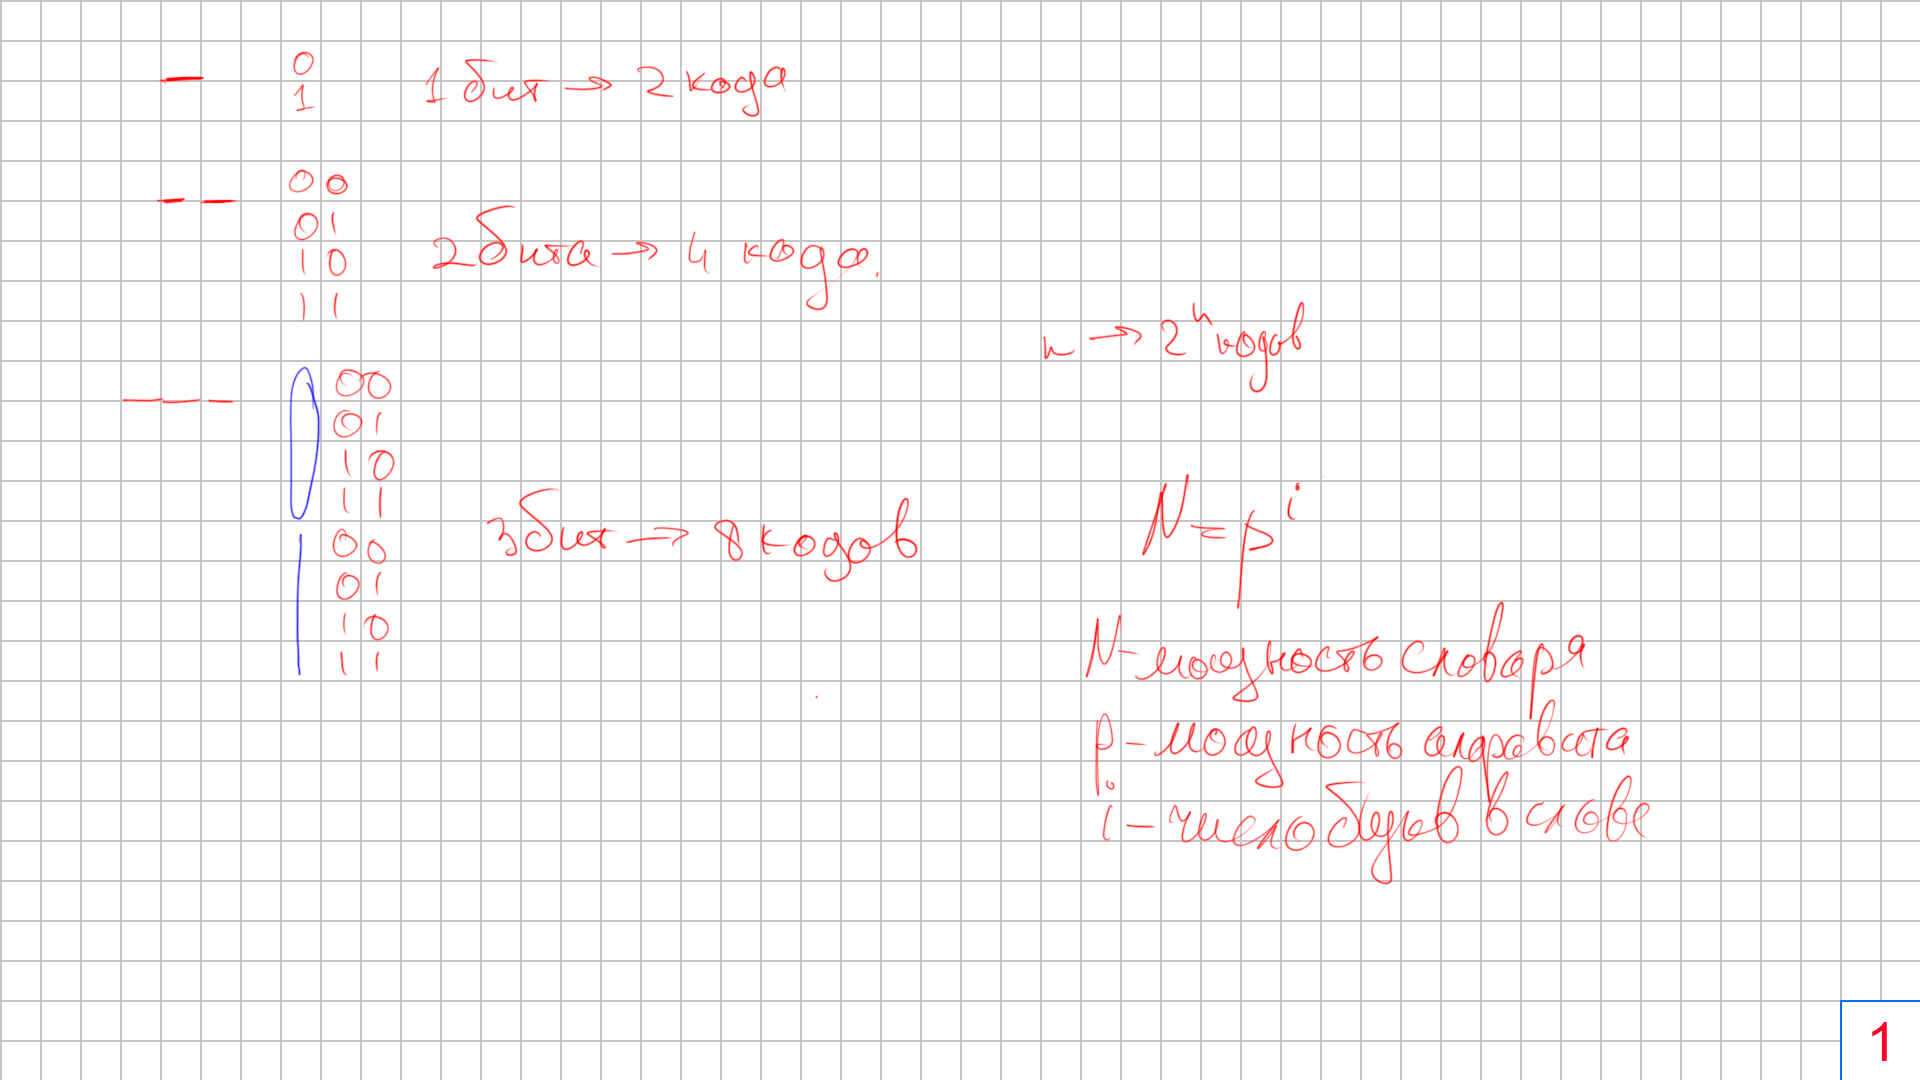 0
1
1 бит → 2 кода
00
01
10
11
2 бита → 4 кода.
n → 2ⁿ кодов
0 00
01
10
11
1 00
01
10
11
3 бит → 8 кодов
N = pⁱ
N – мощность словаря
p – мощность алфавита
i – число букв в слове
1